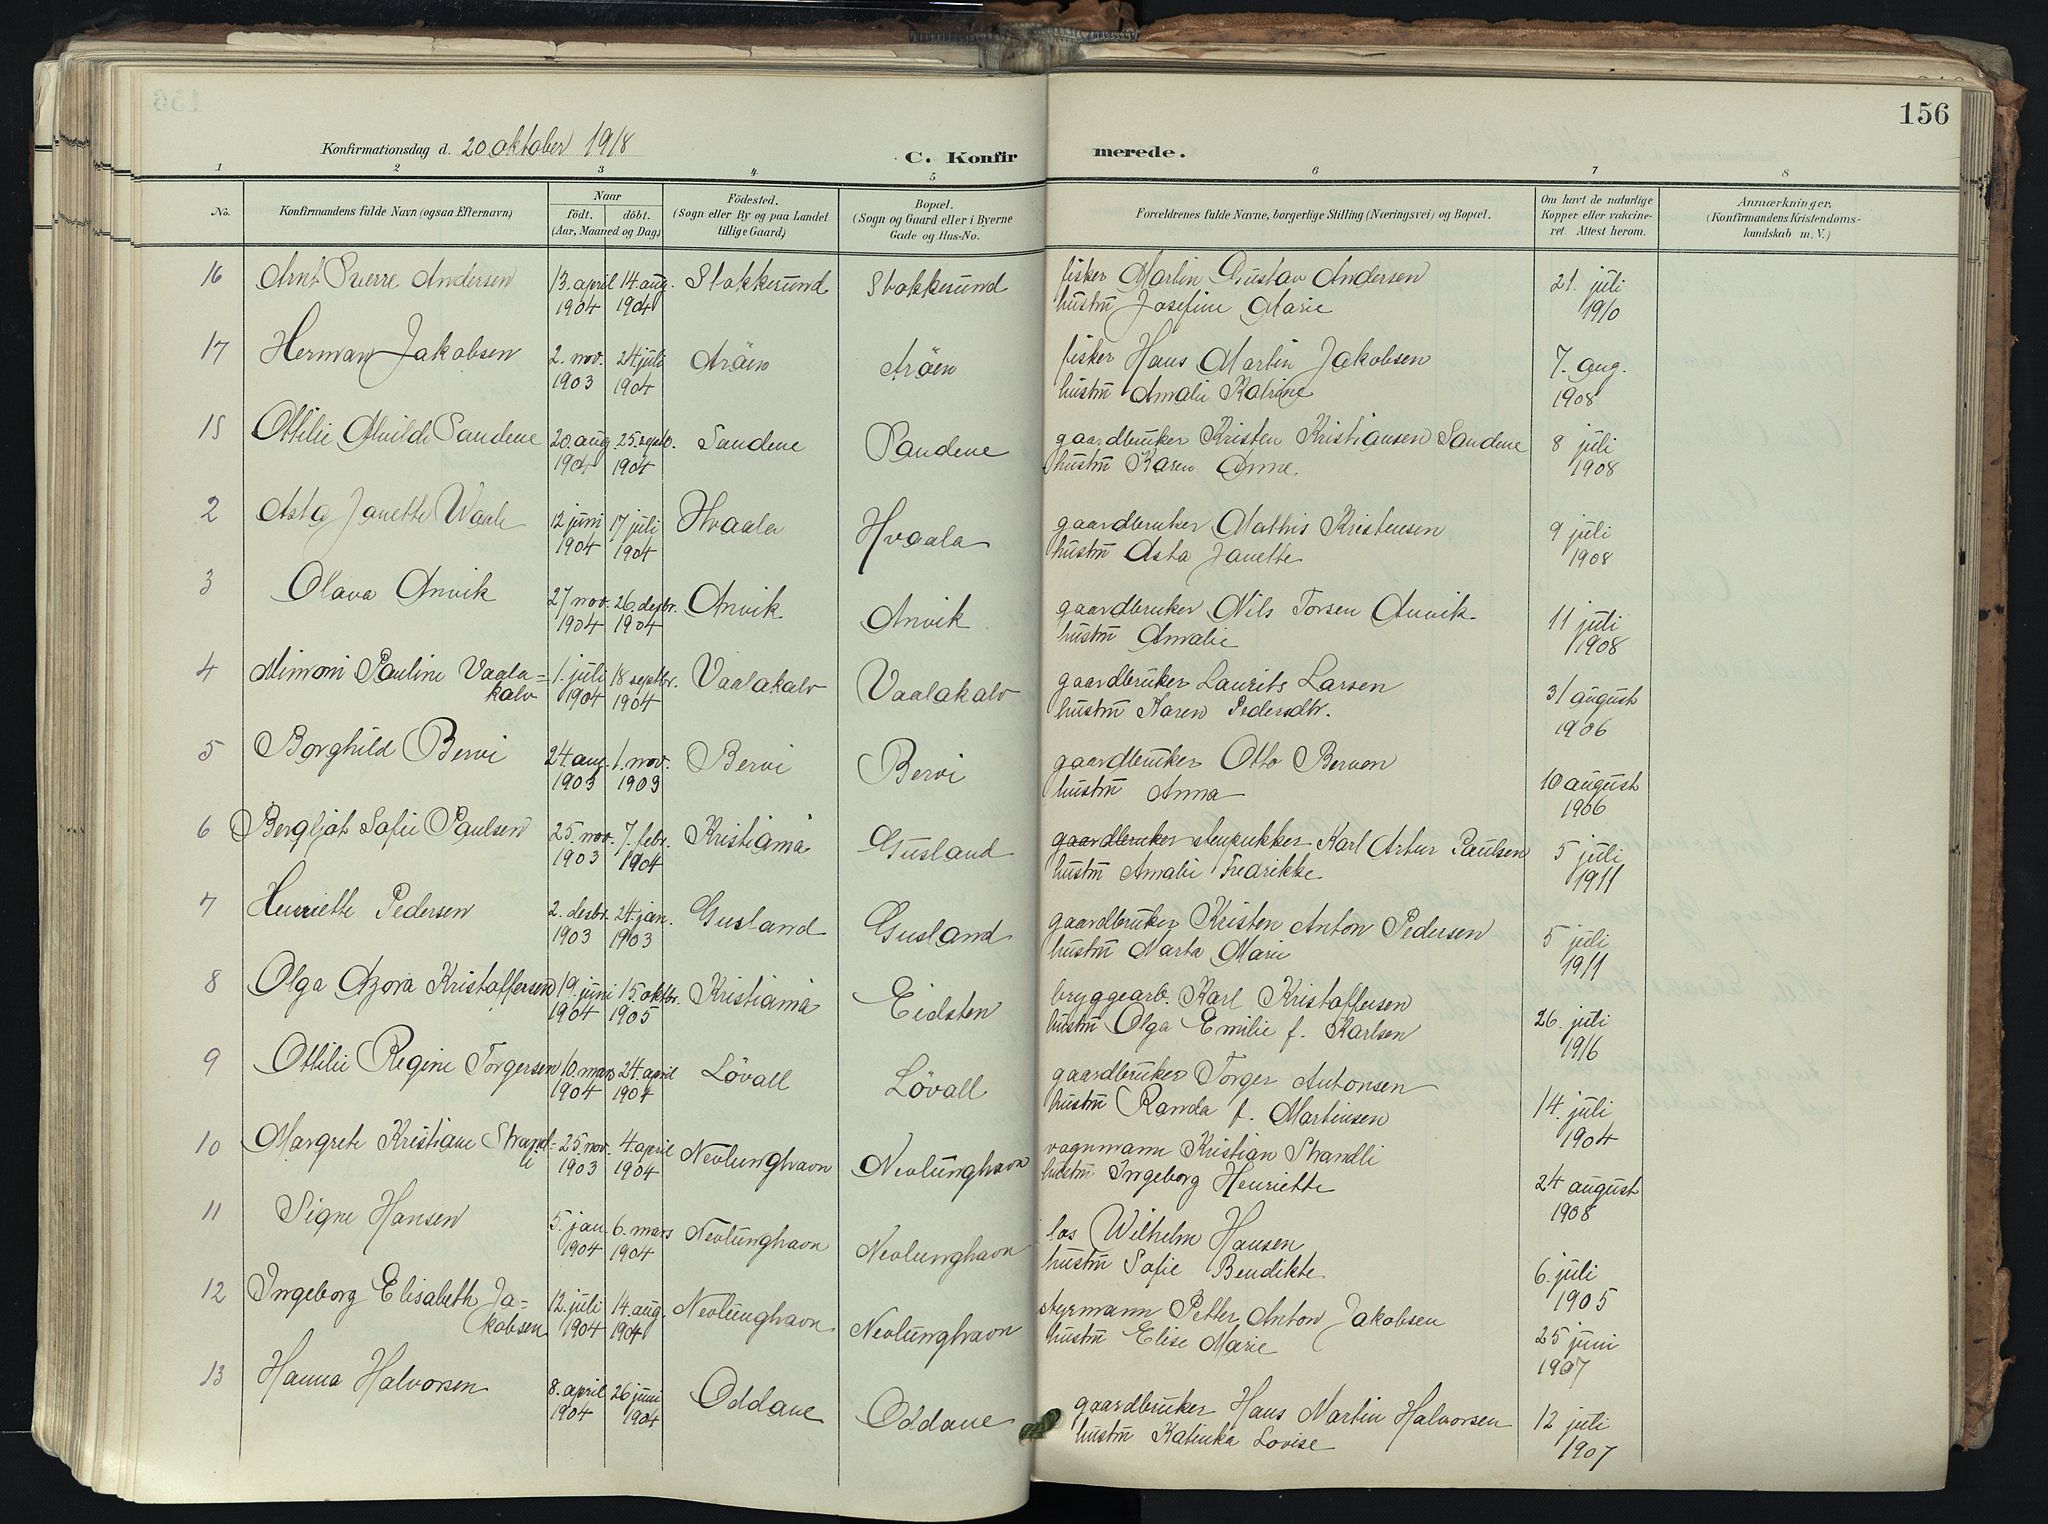 156
Konfirmationsdag d. 20 oktober 1918
C. Konfirmerede.
1 2 3 4 5 6 7 8
No. | Konfirmandens fulde Navn (ogsaa Efternavn) | Naar födt. döbt. (Aar, Maaned og Dag.) | Födested. (Sogn eller By og paa Landet tillige Gaard.) | Bopæl. (Sogn og Gaard eller i Byerne Gade og Hus-No. | Forældrenes fulde Navne, borgerlige Stilling (Næringsvei) og Bopæl. | Om havt de naturlige Kopper eller vakcineret. Attest herom. | Anmærkninger. (Konfirmandens Kristendomskundskab m. V.)
16 Arnt Sverre Andersen 13. april 14. aug. Stokkesund Stokkesund fisker Martin Gustav Andersen 21. juli
1904 1904 hustru Josefine Marie 1910
17 Herman Jakobsen 2. nov. 24. juli Aröen Aröen fisker Hans Martin Jakobsen 7. aug.
1903 1904 hustru Amalie Katrine 1908
15 Ottilie Alvilde Sandene 20. aug. 25. septb. Sandene Sandene gaardbruker Kristen Kristiansen Sandene 8 juli
1904 1904 hustru Karen Anne. 1908
2 Asta Janette Waale 12 juni 17 juli Hvaala Hvaala gaardbruker Mathis Kristensen 9 juli
1904 1904 hustru Asta Janette 1908
3 Olava Anvik 27 nov. 26. desbr. Anvik Anvik gaardbruker Nils Torsen Anvik 11 juli
1904 1904 hustru Amalie 1908
4 Mimmi Pauline Vaala= 1. juli 18 septbr. Vaalakalv Vaalakalv gaardbruker Laurits Larsen 31 august
kalv 1904 1904 hustru Karen Pedersdtr. 1906
5 Borghild Bervi 24. aug. 1. nov. Bervi Bervi gaardbruker Otto Berven 10 august
1903 1903 hustru Anna 1906
6 Bergljot Sofie Paulsen 25. nov. 7. febr. Kristiania Gusland gaardbruker stenpukker Karl Artur Paulsen 5 juli
1903 1904 hustru Amalie Fredrikke 1911
7 Henriette Pedersen 2. desbr. 24. jan. Gusland Gusland gaardbruker Kristen Anton Pedersen 5 juli
1903 1903 hustru Marta Marie 1911
8 Olga Azora Kristoffersen 19. juni 15. oktbr. Kristiania Eidsten bryggearb. Karl Kristoffersen 26. juli
1904 1905 hustru Olga Emilie f. Karlsen 1916
9 Ottilie Regine Torgersen 10. mars 24. april Lövall Lövall gaardbruker Torger Antonsen 14. juli
1904 1904 hustru Randa f. Martinsen 1904
10 Margrete Kristiane Strand- 25 nov. 4. april Nevlunghavn Nevlunghavn vognmann Kristian Strandli 24 august
li 1903 1904 hustru Ingeborg Henriette 1908
11 Signe Hansen 5. jan. 6. mars Nevlunghavn Nevlunghavn los Wilhelm Hansen 6. juli
1904 1904 hustru Sofie Bendikte 1905
12 Ingeborg Elisabeth Ja- 12. juli 14. aug. Nevlunghavn Nevlunghavn styrmann Petter Anton Jakobsen 25 juni
kobsen 1904 1904 hustru Elise Marie 1907
13 Hanna Halvorsen 8. april 26 juni Oddane Oddane gaardbruker Hans Martin Halvorsen 12 juli
1904 1904 hustru Katinka Lovise 1907